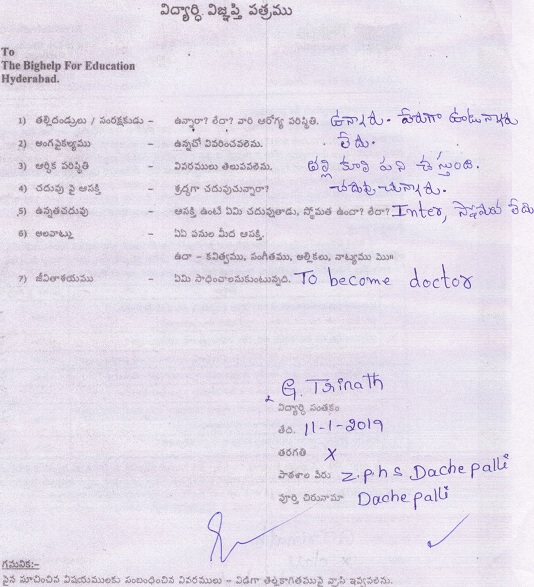 విద్యార్ధి విజ్ఞప్తి పత్రము
To
The Bighelp For Education
Hyderabad.
1) తల్లిదండ్రులు / సంరక్షకుడు - ఉన్నారా? లేదా? వారి ఆరోగ్య పరిస్థితి. ఉన్నారు. వేరుగా ఉంటున్నారు
2) అంగవైకల్యము - ఉన్నచో వివరించవలెను. లేదు.
3) ఆర్థిక పరిస్థితి - వివరములు తెలుపవలెను. తల్లి కూలి పని చేస్తుంది.
4) చదువు పై ఆసక్తి - శ్రద్ధగా చదువుచున్నారా? చదువుచున్నారు.
5) ఉన్నతచదువు - ఆసక్తి ఉంటే ఏమి చదువుతాడు, స్తోమత ఉందా? లేదా? Inter, స్తోమత లేదు
6) అలవాట్లు - ఏఏ పనుల మీద ఆసక్తి.
ఉదా - కవిత్వము, సంగీతము, అల్లికలు, నాట్యము మొ॥
7) జీవితాశయము - ఏమి సాధించాలనుకుంటున్నది. To become doctor
G. Trinath
విద్యార్ధి సంతకం
తేది. 11-1-2019
తరగతి X
పాఠశాల పేరు Z.p.h.s Dachepalli
పూర్తి చిరునామా Dachepalli
గమనిక:-
పైన సూచించిన విషయములకు సంబంధించిన వివరములు - విడిగా తెల్లకాగితముపై వ్రాసి ఇవ్వవలెను.